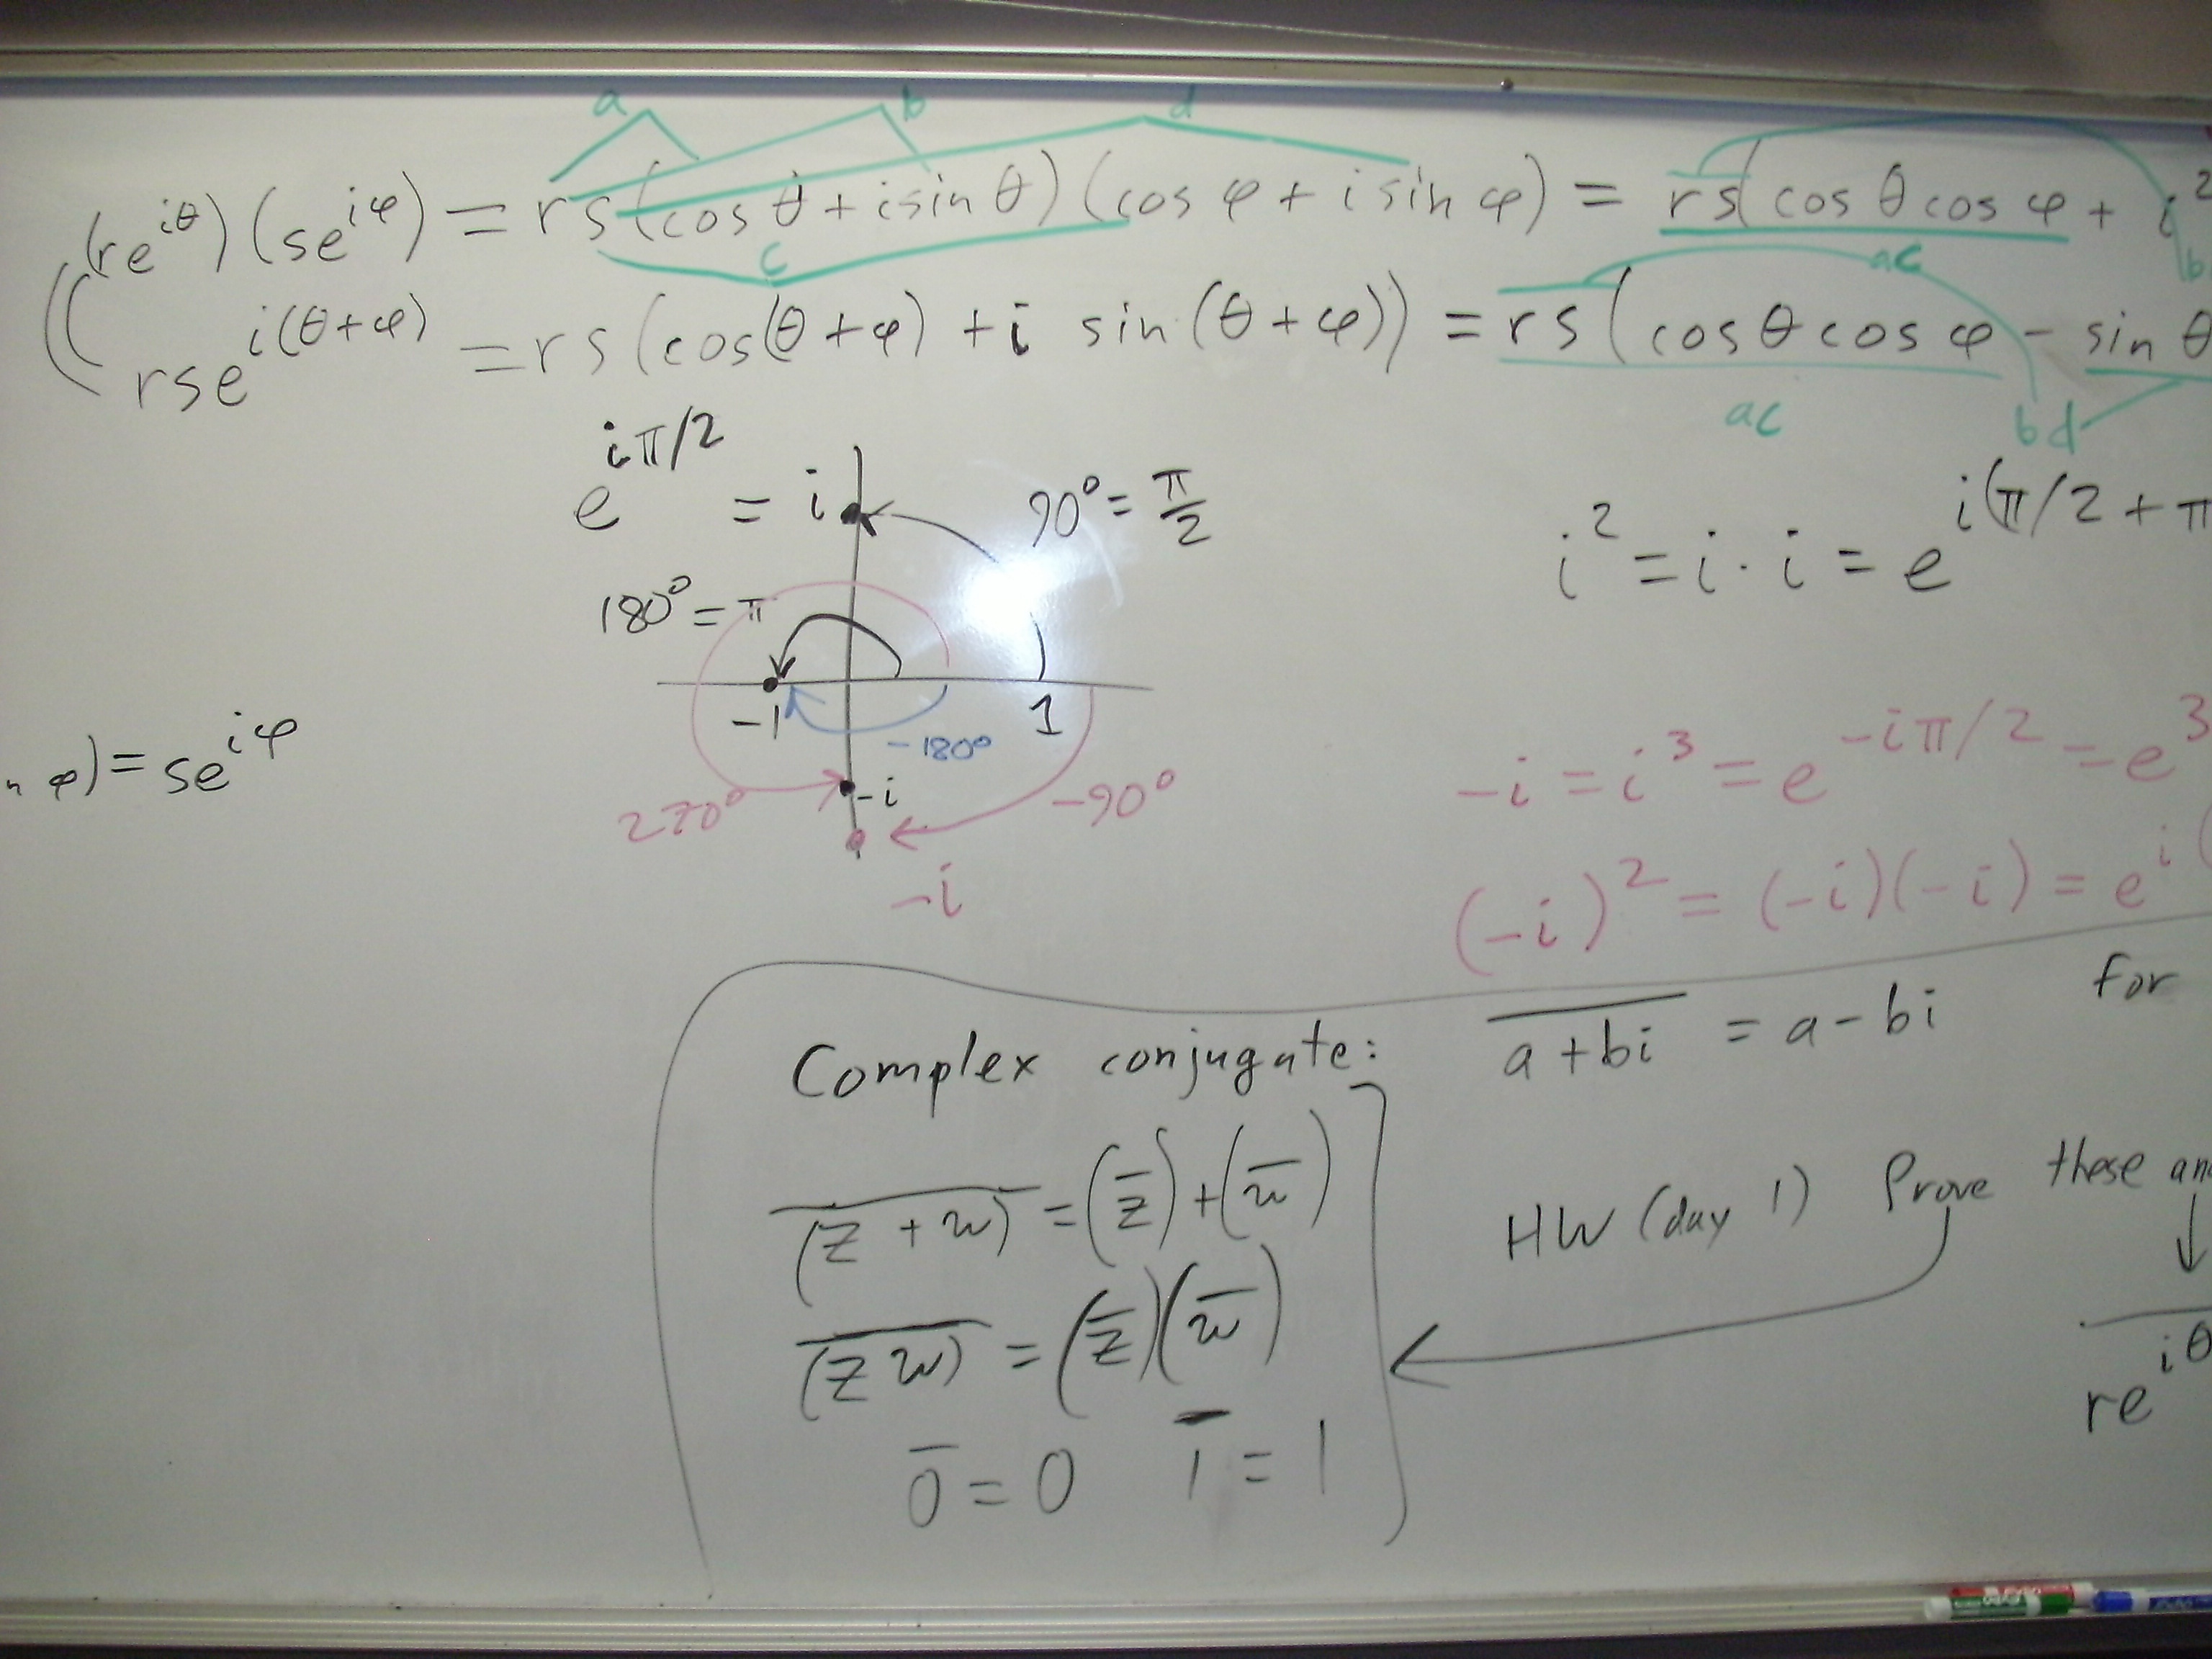 a b d
(re^{iθ})(se^{iφ}) = rs(cos θ + i sin θ)(cos φ + i sin φ) = rs(cos θ cos φ + i²
c ac b
rse^{i(θ+φ)} = rs(cos(θ+φ) + i sin(θ+φ)) = rs(cos θ cos φ - sin θ
ac bd
e^{iπ/2} = i 90° = π/2
i² = i · i = e^{i(π/2 + π
180° = π
-1 1
-180°
φ) = se^{iφ}
-i = i³ = e^{-iπ/2} = e^{3
-i
270° -90°
-i
(-i)² = (-i)(-i) = e^{i(
Complex conjugate: \overline{a+bi} = a - bi for
\overline{(z + w)} = (\overline{z}) + (\overline{w})
HW (day 1) Prove these
\overline{(zw)} = (\overline{z})(\overline{w})
\overline{re^{iθ}
\overline{0} = 0 \overline{1} = 1